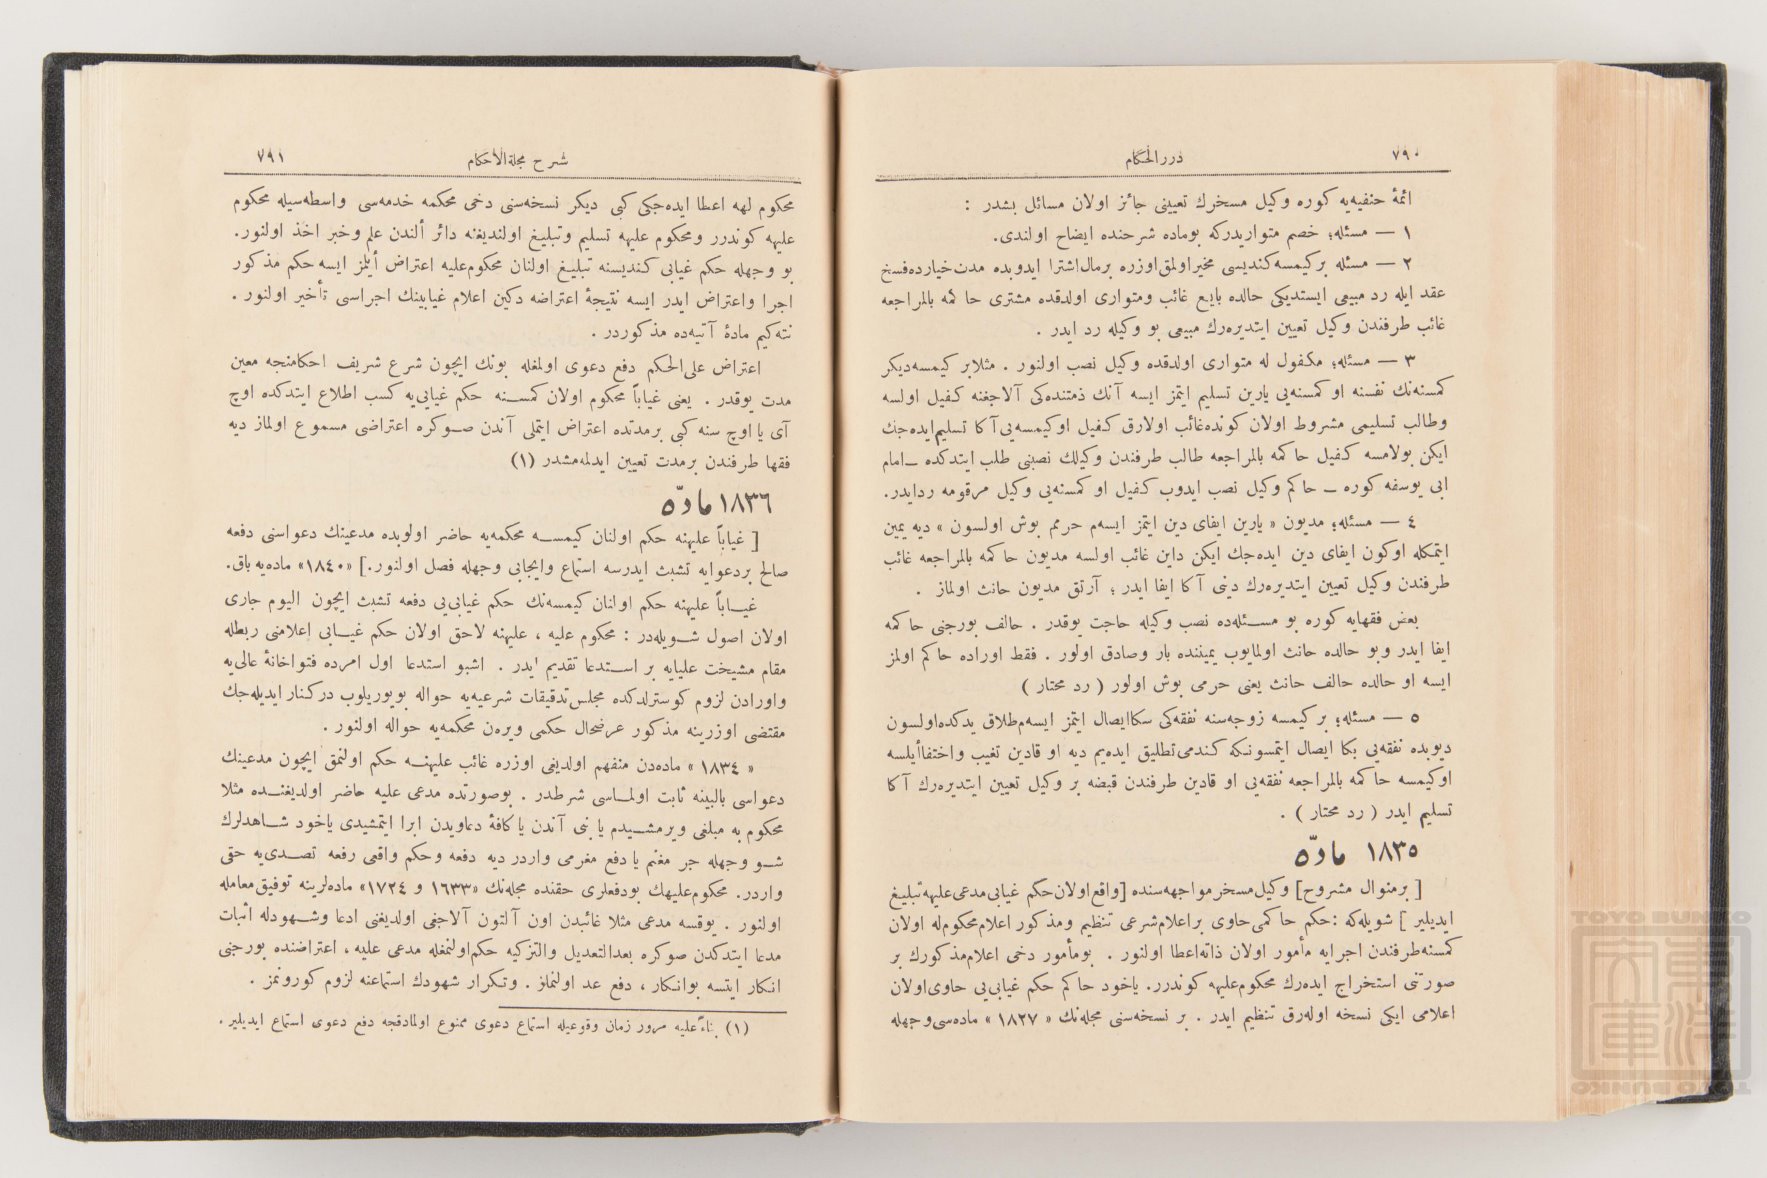 ٧٩٠
دررالحكام
ائمۀ حنفيه‌يه كوره وكيل مسخرك تعيينى جائز اولان مسائل بشدر :
١ — مسئله؛ خصم متواريدركه بوماده شرحنده ايضاح اولندى.
٢ — مسئله بركيمسه كنديسى مخيراولمق اوزره برمال اشترا ايدوبده مدت خيارده فسخ
عقد ايله رد مبيعى ايستديكى حالده بايع غائب ومتوارى اولدقده مشترى حاكمه بالمراجعه
غائب طرفندن وكيل تعيين ايتديره‌رك مبيعى بو وكيله رد ايدر .
٣ — مسئله؛ مكفول له متوارى اولدقده وكيل نصب اولنور . مثلابر كيمسه ديكر
كمسنه‌نك نفسنه او كمسنه‌يى يارين تسليم ايتمز ايسه آنك ذمتنده‌كى آلاجغنه كفيل اولسه
وطالب تسليمى مشروط اولان كونده غائب اولارق كفيل اوكيمسه‌يى آكا تسليم ايده‌جك
ايكن بولامسه كفيل حاكمه بالمراجعه طالب طرفندن وكيلك نصبنى طلب ايتدكده — امام
ابى يوسفه كوره — حاكم وكيل نصب ايدوب كفيل او كمسنه‌يى وكيل مرقومه ردايدر.
٤ — مسئله؛ مديون « يارين ايفاى دين ايتمز ايسه‌م حرمم بوش اولسون » ديه يمين
ايتمكله اوكون ايفاى دين ايده‌جك ايكن داين غائب اولسه مديون حاكمه بالمراجعه غائب
طرفندن وكيل تعيين ايتديره‌رك دينى آكا ايفا ايدر ؛ آرتق مديون حانث اولماز .
بعض فقهايه كوره بو مسئله‌ده نصب وكيله حاجت يوقدر . حالف بورجنى حاكمه
ايفا ايدر وبو حالده حانث اولمايوب يميننده بار وصادق اولور . فقط اوراده حاكم اولمز
ايسه او حالده حالف حانث يعنى حرمى بوش اولور ( رد محتار )
٥ — مسئله؛ بركيمسه زوجه‌سنه نفقه‌كى سكا ايصال ايتمز ايسه‌م طلاق يدكده اولسون
ديوبده نفقه‌يى بكا ايصال ايتمسونكه كندمى تطليق ايده‌يم ديه او قادين تغيب واختفا ايلسه
اوكيمسه حاكمه بالمراجعه نفقه‌يى او قادين طرفندن قبضه بر وكيل تعيين ايتديره‌رك آكا
تسليم ايدر ( رد محتار ) .
١٨٣٥ مادّه
[ برمنوال مشروح] وكيل مسخر مواجهه‌سنده [واقع اولان حكم غيابى مدعى عليه تبليغ
ايديلير ] شويله‌كه : حكم حاكمى حاوى براعلام شرعى تنظيم ومذكور اعلام محكوم له اولان
كمسنه طرفندن اجرايه مأمور اولان ذاته اعطا اولنور . بومأمور دخى اعلام مذكورك بر
صورتنى استخراج ايده‌رك محكوم عليه كوندرر. ياخود حاكم حكم غيابى‌يى حاوى اولان
اعلامى ايكى نسخه اوله‌رق تنظيم ايدر . بر نسخه‌سنى مجله‌نك « ١٨٢٧ » ماده‌سى وجهله
شرح مجلة الاحكام
٧٩١
محكوم لهه اعطا ايده‌جكى كبى ديكر نسخه‌سنى دخى محكمه خدمه‌سى واسطه‌سيله محكوم
عليه كوندرر ومحكوم عليه تسليم وتبليغ اولنديغنه دائر ألندن علم وخبر اخذ اولنور.
بو وجهله حكم غيابى كنديسنه تبليغ اولنان محكوم عليه اعتراض أيلمز ايسه حكم مذكور
اجرا واعتراض ايدر ايسه نتيجۀ اعتراضه دكين اعلام غيابينك اجراسى تأخير اولنور .
نته‌كيم مادۀ آتيه‌ده مذكوردر .
اعتراض على الحكم دفع دعوى اولمغله بونك ايچون شرع شريف احكامنجه معين
مدت يوقدر . يعنى غياباً محكوم اولان كمسنه حكم غيابى‌يه كسب اطلاع ايتدكده اوچ
آى يا اوچ سنه كبى برمدتده اعتراض ايتملى آندن صوكره اعتراضى مسموع اولماز ديه
فقها طرفندن برمدت تعيين ايدلمه‌مشدر (١)
١٨٣٦ مادّه
[ غياباً عليهنه حكم اولنان كيمسه محكمه‌يه حاضر اولوبده مدعينك دعواسنى دفعه
صالح بردعوايه تشبث ايدرسه استماع وايجابى وجهله فصل اولنور.] «١٨٤٠» ماده‌يه باق.
غياباً عليهنه حكم اولنان كيمسه‌نك حكم غيابى‌يى دفعه تشبث ايچون اليوم جارى
اولان اصول شويله‌در : محكوم عليه ، عليهنه لاحق اولان حكم غيابى اعلامنى ربطله
مقام مشيخت عليايه بر استدعا تقديم ايدر . اشبو استدعا اول امرده فتواخانۀ عالى‌يه
واورادن لزوم كوسترلدكده مجلس تدقيقات شرعيه‌يه حواله بويوريلوب دركنار ايديله‌جك
مقتضى اوزرينه مذكور عرضحال حكمى ويره‌ن محكمه‌يه حواله اولنور .
« ١٨٣٤ » ماده‌دن منفهم اولديغى اوزره غائب عليهنه حكم اولنمق ايچون مدعينك
دعواسى بالبينه ثابت اولماسى شرطدر . بوصورتده مدعى عليه حاضر اولديغنده مثلا
محكوم به مبلغى ويرمشيدم يا بنى آندن يا كافۀ دعاويدن ابرا ايتمشيدى ياخود شاهدلرك
شو وجهله جر مغنم يا دفع مغرمى واردر ديه دفعه وحكم واقعى رفعه تصدى‌يه حقى
واردر. محكوم عليهك بودفعلرى حقنده مجله‌نك «١٦٣٣ و ١٧٢٤» ماده‌لرينه توفيق معامله
اولنور . يوقسه مدعى مثلا غائبدن اون آلتون آلاجغى اولديغنى ادعا وشهودله اثبات
مدعا ايتدكدن صوكره بعدالتعديل والتزكيه حكم اولنمغله مدعى عليه ، اعتراضنده بورجنى
انكار ايتسه بوانكار ، دفع عد اولنماز . وتكرار شهودك استماعنه لزوم كورونمز .
(١) بناءً عليه مرور زمان وقوعيله استماع دعوى ممنوع اولمادقجه دفع دعوى استماع ايديلير.
TOYO BUNKO
東洋文庫
TOYO BUNKO